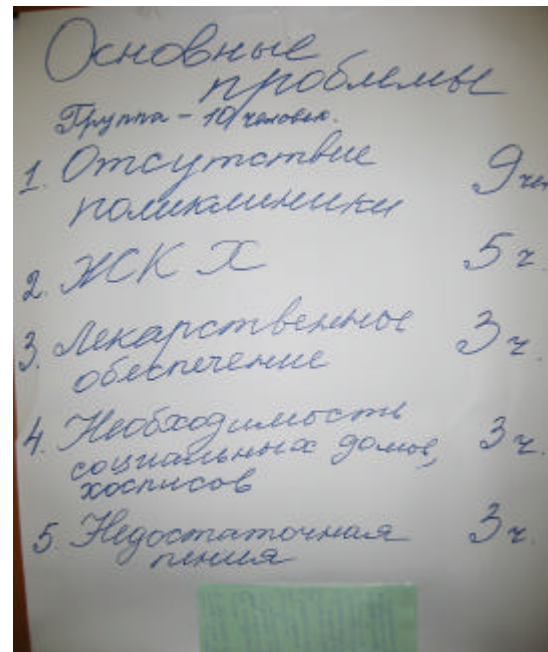 Основные
проблемы
Группа - 10 человек.
1. Отсутствие 9 чел
поликлиники
2. ЖСК Х 5 ч.
3. Лекарственное 3 ч.
обеспечение
4. Необходимость 3 ч.
социальных домов,
хосписов
5. Недостаточная 3 ч.
пения